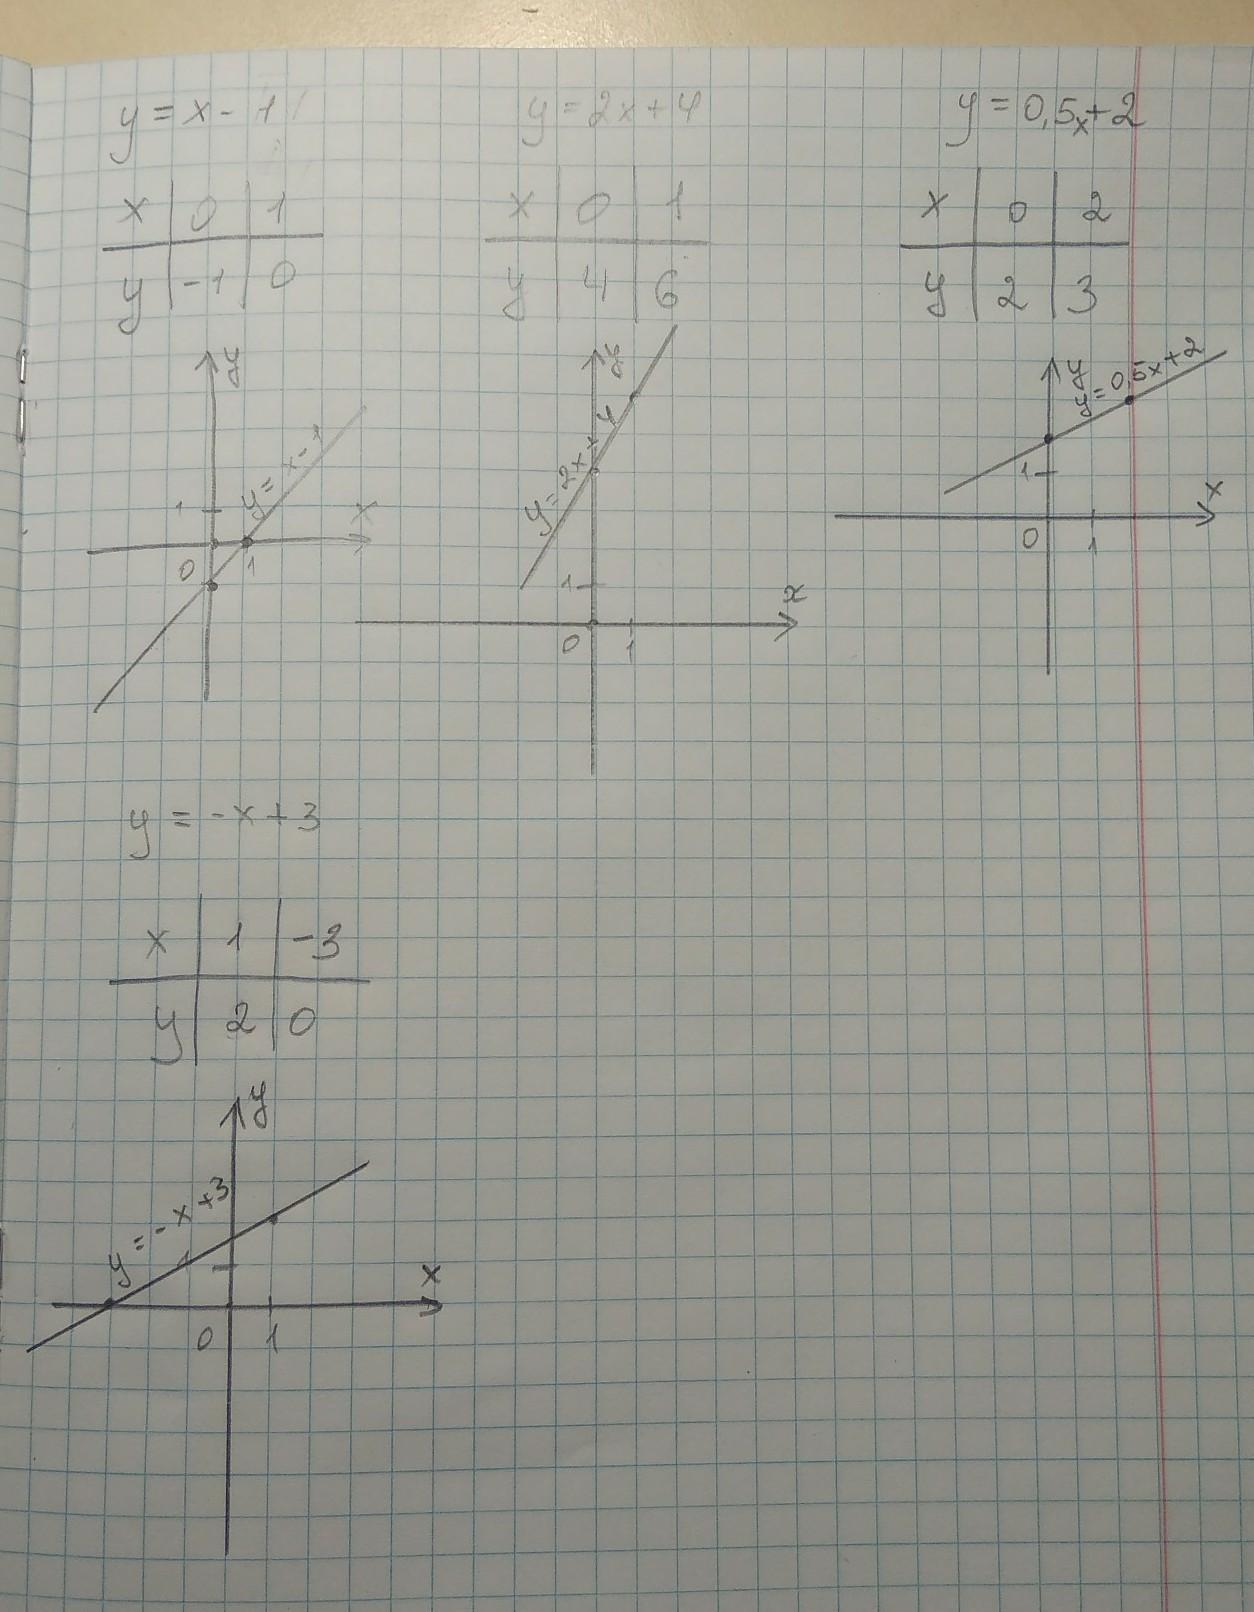 y = x - 1
x 0 1
y -1 0
y
y = x - 1
1
x
0 1
y = 2x + 4
x 0 1
y 4 6
y
y = 2x + 4
1
x
0 1
y = 0,5x + 2
x 0 2
y 2 3
y
y = 0,5x + 2
1
x
0 1
y = -x + 3
x 1 -3
y 2 0
y
y = -x + 3
1
x
0 1